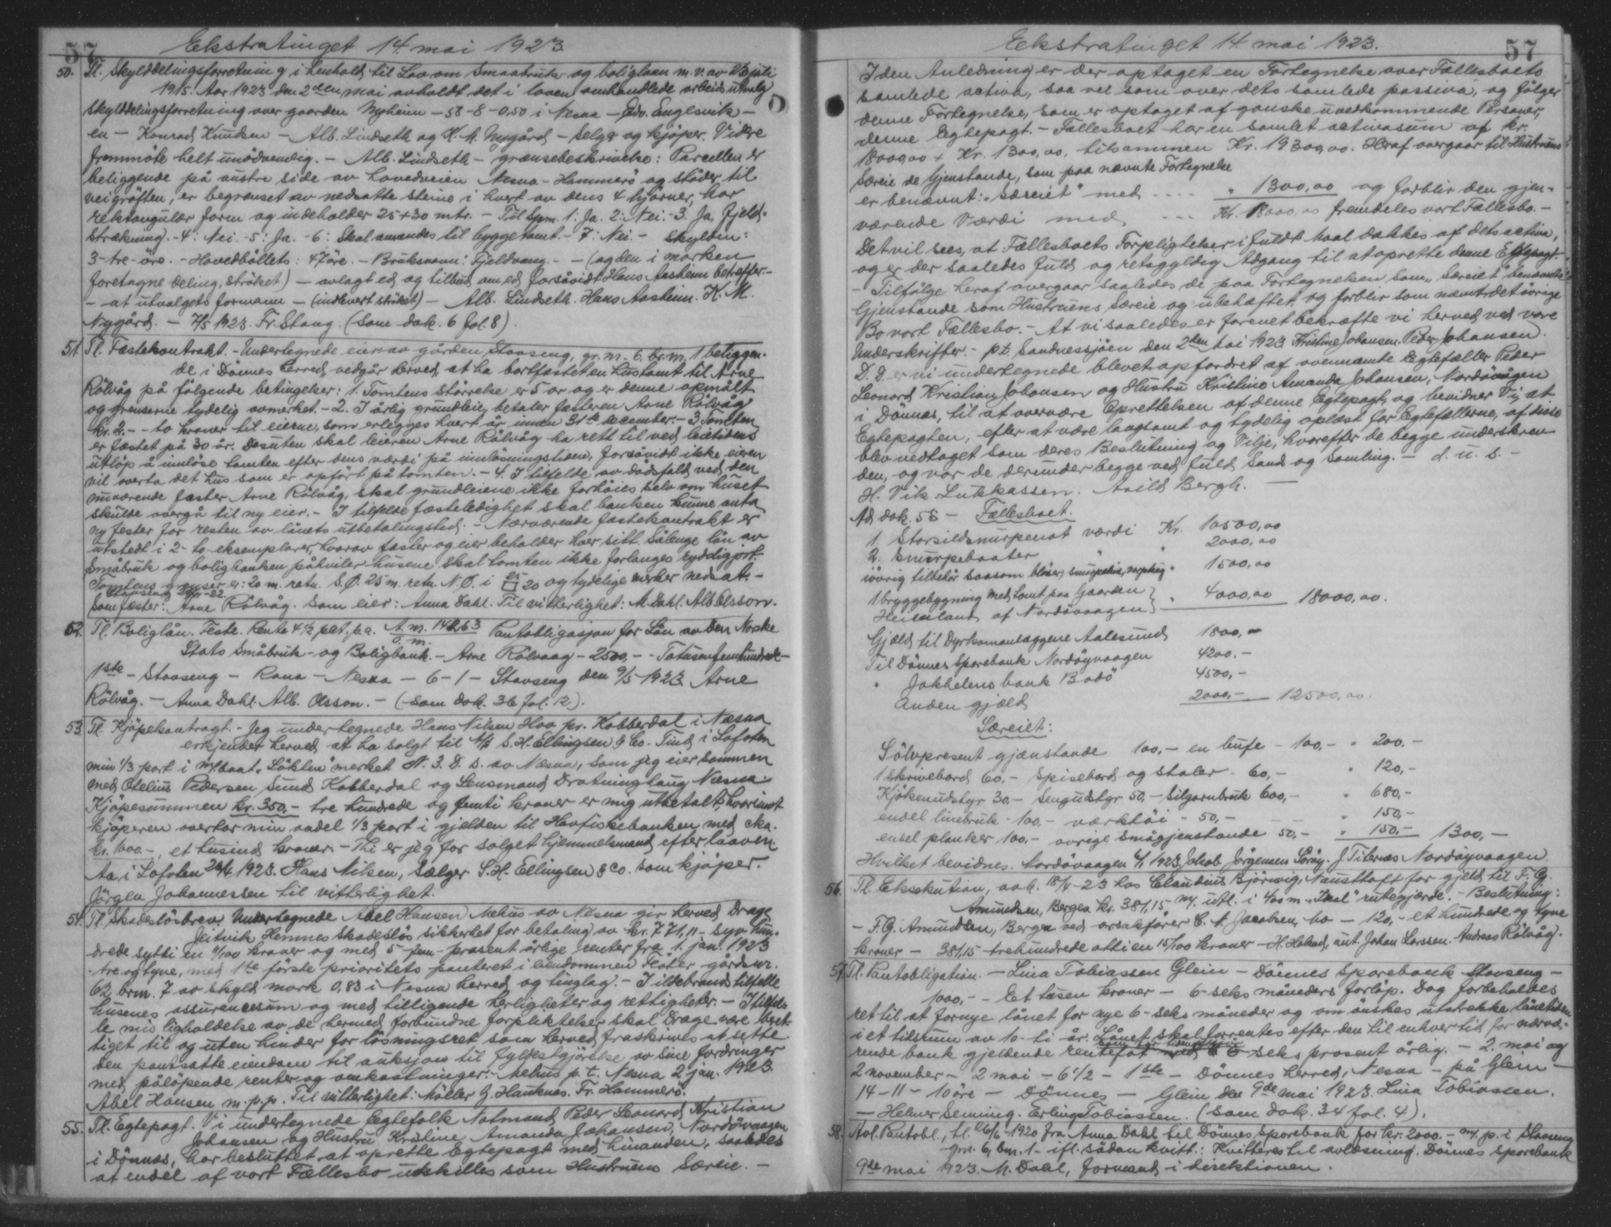 57
Ekstratinget 14. mai 1923
50. Tl. Skylddelingsforretning i henhold til Lov om Smaabruk og boliglaan m.v. av juli
1915. Aar 1923 den 2den mai avholdt det i loven omhandlede arbeidsutvalg
skylddelingsforretning over gaarden Nyheim - 58-8-0,50 i Nesna - Edv. Englesvik -
en - Konrad Knudsen - Alb. Lindseth og K. M. Nygård - selger og kjøper. Videre
fremmøte helt unødvendig. - Alb. Lindseth - grænsebeskrivelse: Parcellen er
beliggende på østre side av hovedveien Nesna - Hammerø og støder til
veigrøften, er begrænset av nedsatte stene i hvert av dens 4 hjørner, har
rektangulær form og indeholder 25+30 mtr. - Til spm. 1: Ja. 2: Nei. 3. Ja, fjeld-
strækning. - 4: Nei - 5: Ja. - 6: Skal anvendes til byggetomt. - 7: Nei. - Skylden:
3 - tre - øre. - Hovedbøllets: 47 øre. - Bruksnavn: Fjeldvang. - (og den i marken
foretagne deling, strøket) - avlagt ed og tilbud om ed forsåvidt Hans Aasheim betræffer. -
- at utvalgets formann - (indlevert strøket) - Alb. Lindseth. Hans Aasheim. K. M.
Nygård. - 7/5 1923. Fr. Stang. (Som dok. 6 fol. 8).
51. Tl. Fæstekontrakt. - Undertegnede eier av gården Stavseng, gr. nr. 6, br. nr. 1 beliggen-
de i Dønnes herred vedgår herved at ha bortfæstet en hustomt til Arne
Rølvåg på følgende betingelser: 1. Tomtens størrelse er 5 ar og er denne opmålt
og grenserne tydelig avmerket. - 2. I årlig grundleie betaler fæsteren Arne Rølvåg
kr. 2. - to kroner til eierne, som erlegges hvert år innen 31te december. - 3. Tomten
er fæstet på 30 år. Desuten skal leieren Arne Rølvåg ha rett til ved leietidens
utløp å innløse tomten efter dens værdi på innløsningstiden, forsåvidt ikke eieren
vil overta det hus som er opført på tomten. - 4. I tilfelde av dødsfald ved den
nuværende fæster Arne Rølvåg, skal grundleiene ikke forhøies selv om huset
skulde overgå til ny eier. - I tilfelde fæsteledighet skal banken kunne anta
ny fester for resten av lånets utbetalingstid. - Nærværende fæstekontrakt er
utstedt i 2 - to eksemplarer, hvorav fæster og eier beholder hver sitt. Sålenge lån av
Småbruk og boligbanken påhviler husene skal tomten ikke forlanges ryddiggjort.
Tomtens grenser er: 20 m. retn. S.Ø. 25 m. retn. N.Ø. i 20 og tydelige merker nedsat. -
Stavseng
Som fæster: Arne Rølvåg. Som eier: Anna Dahl. Til vitterlighet: M. Dahl. Alb. Olsson.
52. Tl. Boliglån. Feste. Rente 4 1/2 pct. p.a. Pantobligasjon for Lån av Den Norske
Stats Småbruk - og Boligbank. - Arne Rølvaag - 2500,- - Totusenfemhundrede -
1ste - Stavseng - Rana - Nesna - 6 - 1 - Stavseng den 9/5 1923. Arne
Rølvåg. - Anna Dahl. Alb. Olsson. - (Som dok. 36 fol. 12).
53. Tl. Kjøpekontragt. - Jeg undertegnede Hans Nilsen Hov pr. Kobberdal i Næsna
erkjender herved at ha solgt til A/S S. H. Ellingsen & Co. Tind i Lofoten
min 1/3 part i m/baat "Løkten" merket N. 3. D. S. av Næsna, som jeg eier sammen
med Otelius Pedersen Sund Kobberdal og Lensmand Dratninghaug Næsna.
Kjøpesummen kr. 350,- tre hundrede og femti kroner er mig utbetalt, hvorimot
kjøperen overtar min andel 1/3 part i gjelden til Havfiskebanken med cka.
kr. 1000.-, et tusind kroner. - Thi er jeg for solget hjemmelsmand efter loven.
Aa i Lofoten 1923. Hans Nilsen, Sælger. S. H. Ellingsen & Co. som kjøper.
Jørgen Johannessen til vitterlighet.
54. Tl. Skadesløsbrev. Undertegnede Abel Hansen Nehus av Nesna gir herved Drage
Leitvik, Hemnes skadesløs sikkerhet for betaling av kr. 771,11 - syv hun-
drede sytti en 11/100 kroner og med 5 - fem - prosent årlige renter fra 1. jan. 1923
- tre og tyve, med 1ste første prioritets panteret i eiendommen gårdsnr.
62, brnr. 7 av skyld mark 0,83 i Nesna herred og tinglag. - I ildebrandstilfelle
husenes assurancesum og med tilliggende herligheter og rettigheter. - I tilfelde
le misligholdelse av de hermed forbundne forpliktelser skal Drage være beret-
tiget til og uten hinder for løsningsret som herved fraskrives at sette
den pantsatte eiendom til auksjon til fyldestgjørelse av sine fordringer
med påløpende renter og omkostninger. - Nehus p.t. Nesna 2 jan. 1923
Abel Hansen m.p.p. Til vitterlighet: Møller G. Hauknes. Fr. Hammerø.
55. Tl. Egtepagt. Vi undertegnede Egtefolk Notmand Peder Leonard Kristian
Johansen og Hustru Kristine Amanda Johansen, Nordøvaagen
i Dønnas, har besluttet at oprette Egtepagt med hinanden, saaledes
at endel af vort Fællesbo utskilles som Hustruens Særeie. -
57
Ekstratinget 14. mai 1923.
I den Anledning er der optaget en Fortegnelse over Fællesboets
samlede activa, saa vel som over dets samlede passiva, og følger
denne Fortegnelse, som er optaget af ganske uvedkommende Personer,
denne Egtepagt. - Fællesboet har en samlet activasum af kr.
18000,00 + Kr. 1300,00, tilsammen Kr. 19300,00. Heraf overgaar til Hustruens
Særeie de Gjenstande, som paa nævnte Fortegnelse
er benævnt: "Særeiet" med - - - " 1300,00 og forblir den gjen-
værende Værdi med - - - Kr. 18000,00 fremdeles vort Fællesbo. -
Det vil sees, at Fællesboets Forpligtelser i fuldt Maal dækkes af dets activa,
og er der saaledes fuld og retsgyldig Adgang til at oprette denne Egtepagt.
- Tilfølge heraf overgaar saaledes de paa Fortegnelsen som "Særeiet" benævnte
Gjenstande som Hustruens Særeie og ubehæftet, og forblir som nævnt det øvrige
Bo vort Fællesbo. - At vi saaledes er forenet bekræfte vi herved ved vore
Underskrifter. - pt. Sandnessjøen den 2den Mai 1923 Kristine Johansen. Peder Johansen.
D. D. er vi undertegnede blevet opfordret af ovennævnte Egtefæller Peder
Leonard Kristian Johansen og Hustru Kristine Amanda Johansen, Nordøvaagen
i Dønnas, til at overvære Oprettelsen af denne Egtepagt, og bevidner Vi, at
Egtepagten, efter at være langsomt og tydelig oplæst for Egtefællerne, af disse
blev vedtaget som deres Beslutning og Vilje, hvorefter de begge underskrev
den, og var de derunder begge ved fuld Sands og Samling. - d. u. s. -
H. Vik Lukkassen. Arild Bergh. -
Ad dok. 55 - Fællesboet.
1. Storsildsnurpenot værdi Kr. 10500,00
2. Snurpebaater " " 2000,00
iøvrig tilbehør saasom blåser, snurpeline, m.m. " 1500,00
1 bryggebygning med tomt paa Gaarden
Husenland af Nordøvaagen " 4000,00 18000,00.
Gjæld til Dyrkornanlæggene Aalesund 1800,-
Til Dønnes Sparebank Nordøyvaagen 4200.-
" Jakhelns bank Bodø 4500,-
Anden gjæld 2000,- 12500,00.
Særeiet:
Sølvpresent gjænstande 100,- en bufe - 100,- " 200.-
1 skrivebord 60.- Spisebord og stoler - 60,- " 120,-
Kjøkenudstyr 30,- Sengudstyr 50,- Silgarnbruk 600,- " 680,-
endel linebruk - 100,- værktøi - 50,- " 150,-
endel planker 100,- øvrige Smågjenstande 50,- " 150,- 1300,-
Hvilket bevidnes. Nordøvaagen 1923. Jakob Jørgensen J. Tilernæs Nordøyvaagen
56. Tl. Eksekution, avh. 18/4-23 hos Claudius Bjørnvig, Næusthaft for gjeld til F. G.
Amundsen, Bergen kr. 381,15 - m/. utl. i 400 m. "Ideal" rutegjærde. - Beslutning:
- F. G. Amundsen, Bergen ved orsakfører C. A. Jacobsen, Mo - 120,- et hundrede og tyve
kroner - 381,15 - trehundrede ottien 15/100 kroner - H. Haland, aut. Johan Larssen. Andreas Rølvåg.
57. Tl. Pantobligation. - Lina Tobiassen Glein - Dønnes Sparebank Stavseng -
1000,- - Et tusen kroner - 6 - seks måneders forløp. Dog forbeholdes
ret til at fornye lånet for nye 6 - seks måneder og om ønskes utstrække lånetiden
i et tidsrum av 10 - ti år. Lånet skal forrentes efter den til enhver tid for nærvæ-
rende bank gjeldende rentefot med 6 - seks prosent årlig. - 2. mai og
2 november - 2 mai - 6 1/2 - 1ste - Dønnes herred, Nesna - på Glein -
14 - 11 - 10 øre - Dønnes - Glein den 9de mai 1923. Lina Tobiassen.
- Helmer Senning. Erling Tobiassen. (Som dok. 34 fol. 4).
58. Avl. Pantobl., tl. 1920 fra Anna Dahl til Dønnes Sparebank for kr. 2000. - m/. p. i Stavseng
gnr. 6, bnr. 1 - ifl. sådan kvitt.: Kvitteres til avlæsning. Dønnes Sparebank
9de mai 1923. M. Dahl, formand i direktionen.